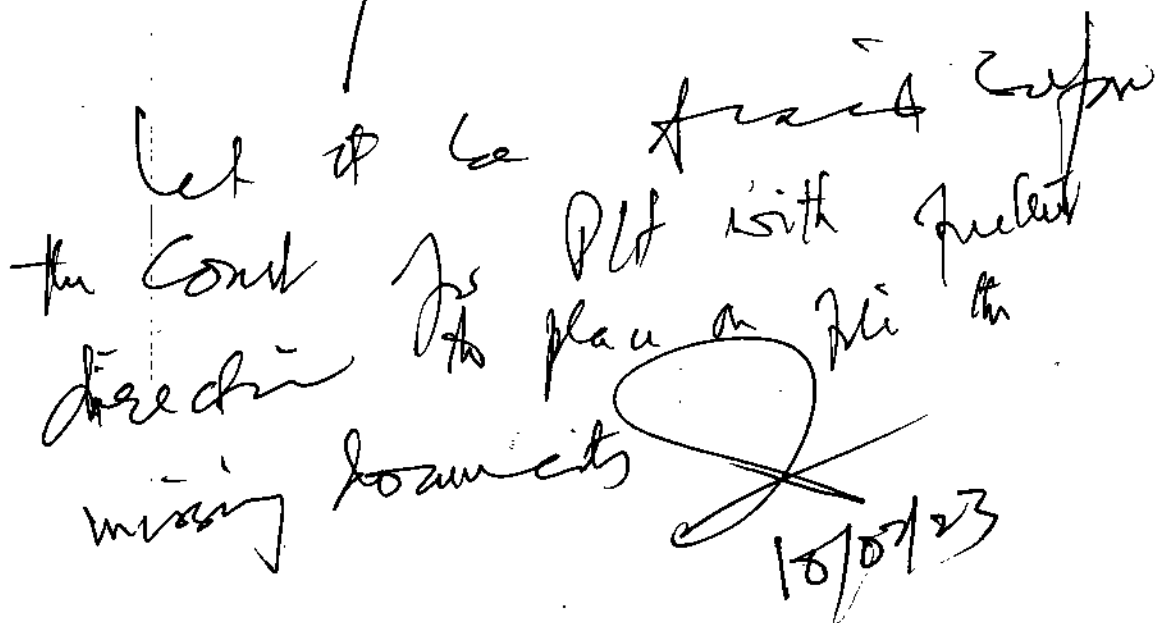 Let it be fixed before
the Court for PLA with further
direction to place on file the
missing documents